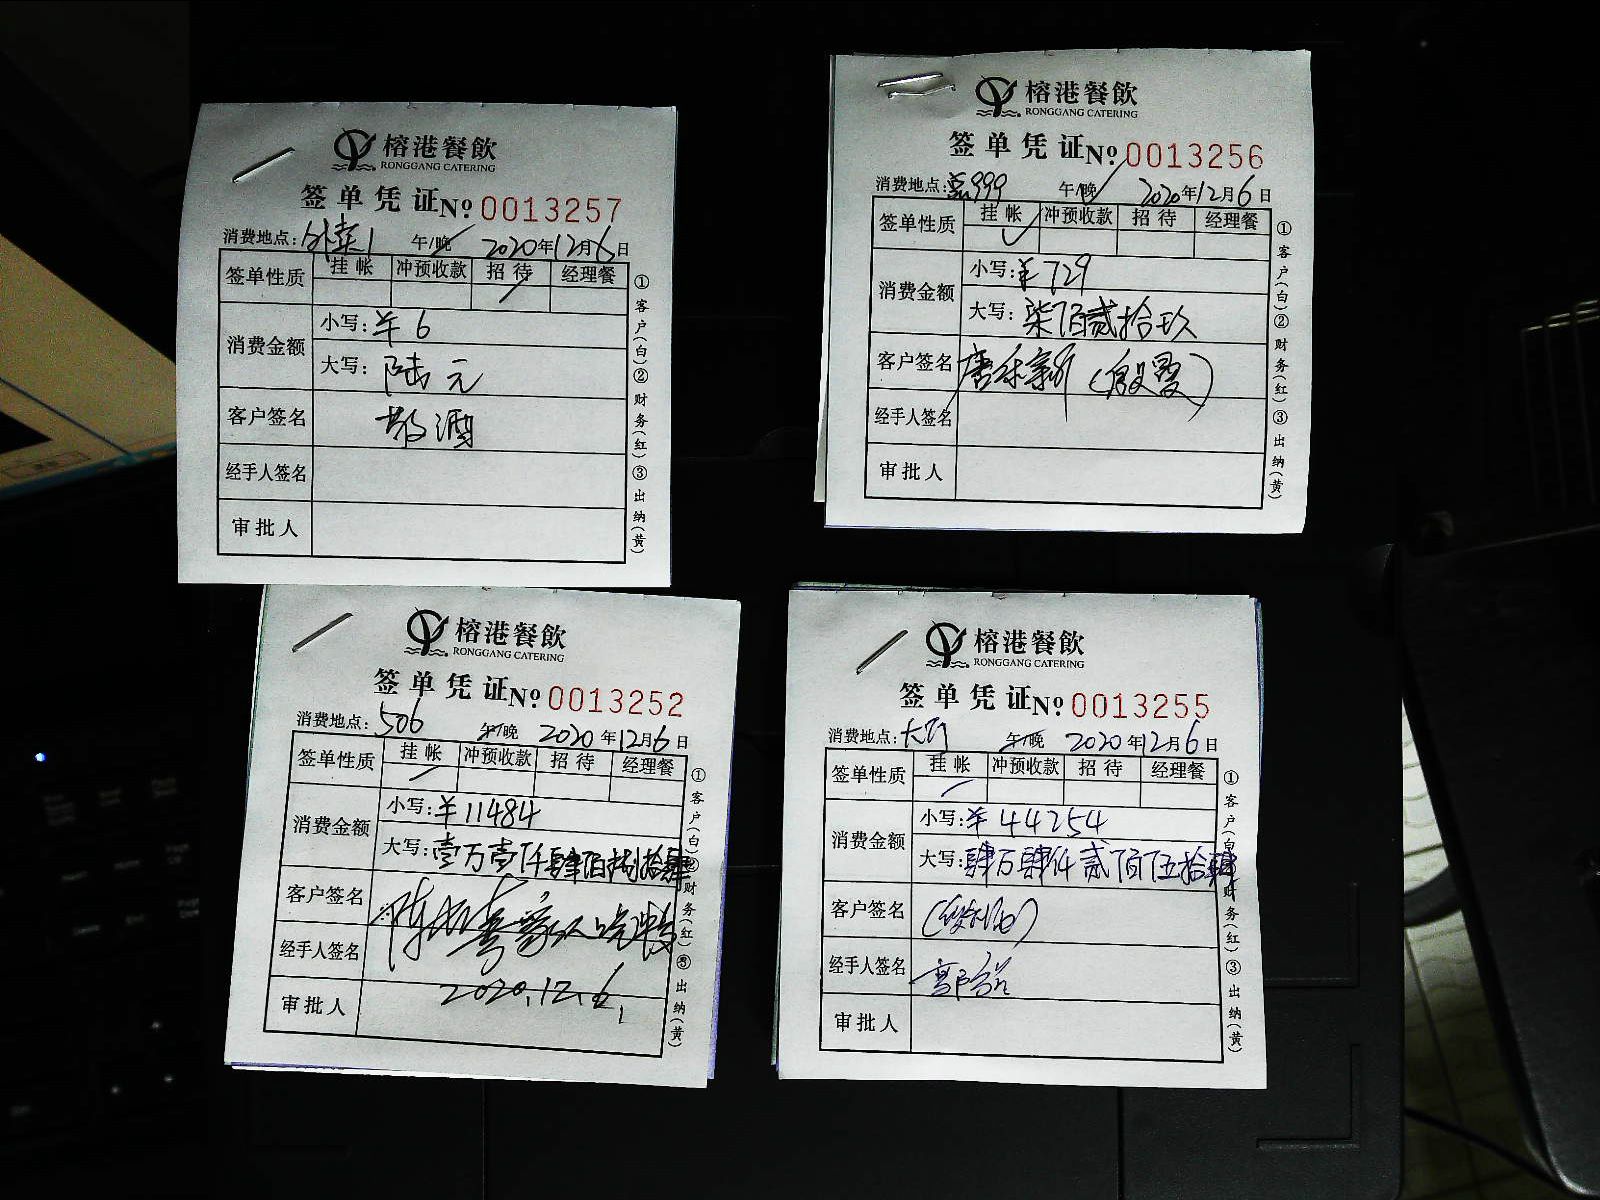 榕港餐飲
RONGGANG CATERING
签单凭证 № 0013257
消费地点: 外卖1 午/晚 2020年12月6日
签单性质 挂帐 冲预收款 招待 经理餐
消费金额 小写: ¥6
大写: 陆元
客户签名 敬酒
经手人签名
审批人
①客户(白)②财务(红)③出纳(黄)
榕港餐飲
RONGGANG CATERING
签单凭证 № 0013256
消费地点: 999 午/晚 2020年12月6日
签单性质 挂帐 冲预收款 招待 经理餐
消费金额 小写: ¥729
大写: 柒佰贰拾玖
客户签名
经手人签名
审批人
①客户(白)②财务(红)③出纳(黄)
榕港餐飲
RONGGANG CATERING
签单凭证 № 0013252
消费地点: 506 午/晚 2020年12月6日
签单性质 挂帐 冲预收款 招待 经理餐
消费金额 小写: ¥11484
大写: 壹万壹仟肆佰捌拾肆
客户签名
经手人签名
2020.12.6.
审批人
①客户(白)②财务(红)③出纳(黄)
榕港餐飲
RONGGANG CATERING
签单凭证 № 0013255
消费地点: 大厅 午/晚 2020年12月6日
签单性质 挂帐 冲预收款 招待 经理餐
消费金额 小写: ¥44254
大写: 肆万肆仟贰佰伍拾肆
客户签名
经手人签名
审批人
①客户(白)②财务(红)③出纳(黄)